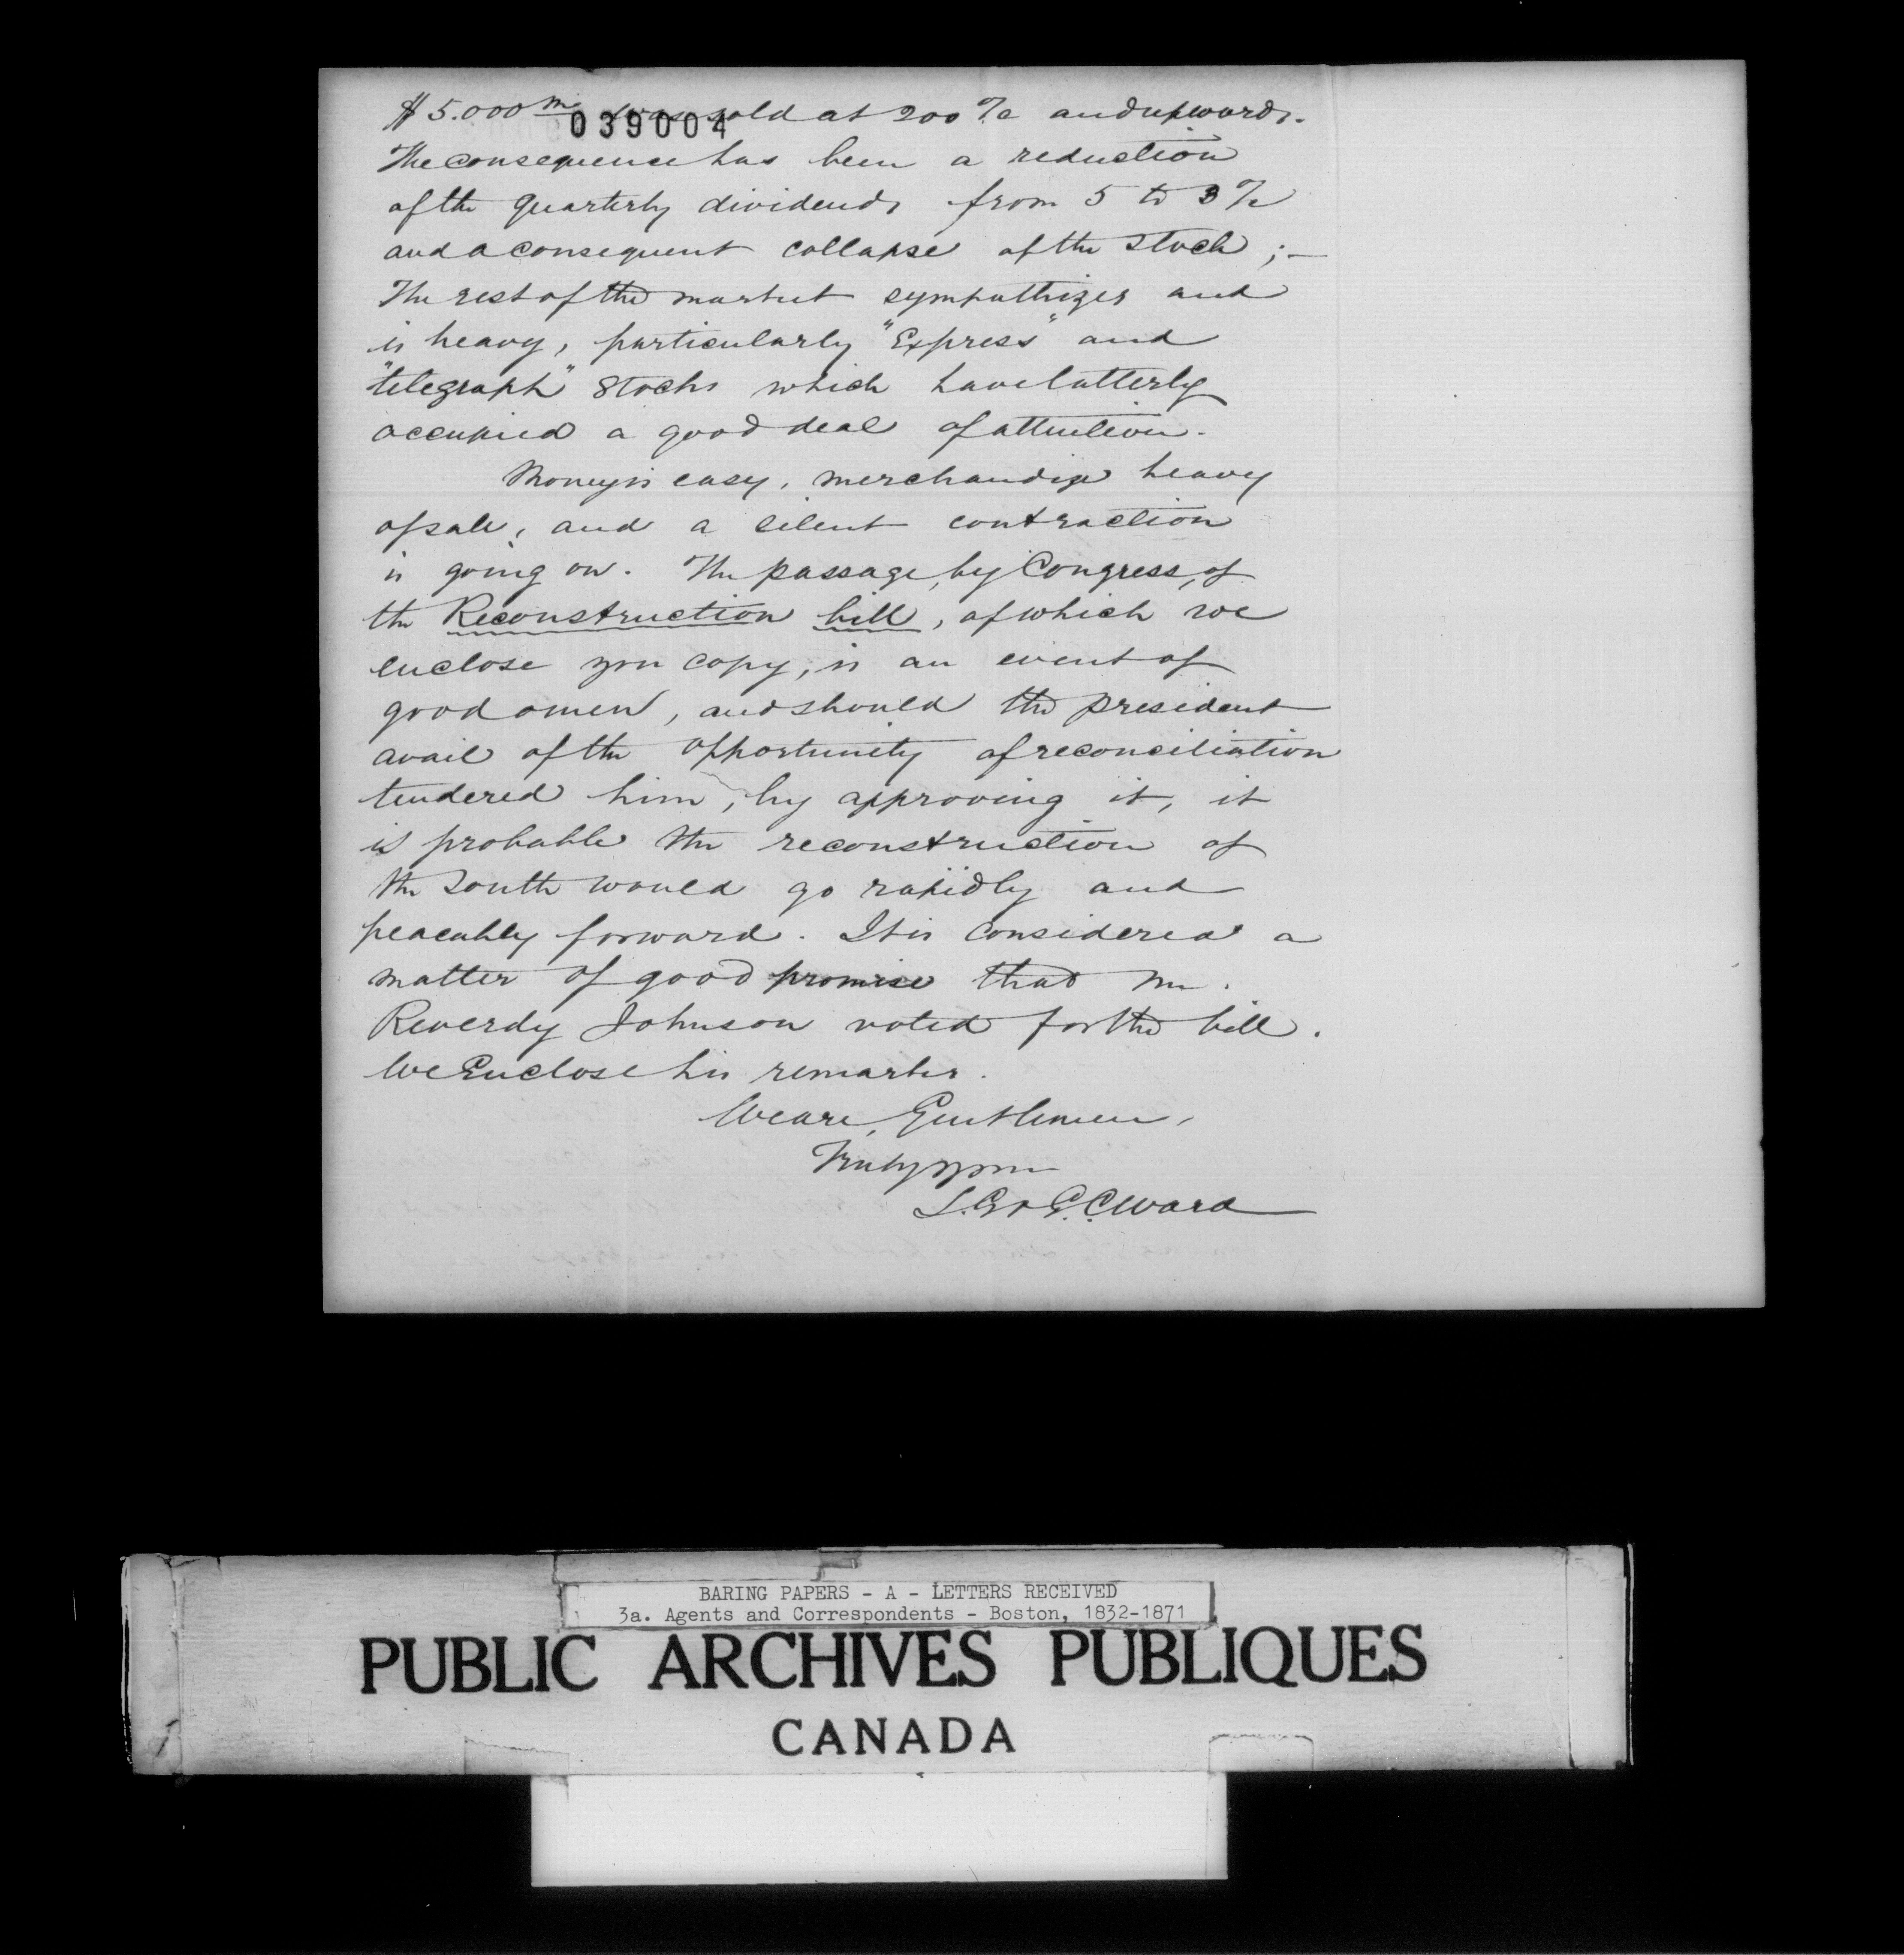 $5.000m was sold at 200 % and upwards.
039004
The consequence has been a reduction
of the quarterly dividends from 5 to 3%
and a consequent collapse of the stock ;—
The rest of the market sympathizes and
is heavy, particularly "Express" and
"telegraph" stocks which have latterly
occupied a good deal of attention.
Money is easy, merchandize heavy
of sale, and a silent contraction
is going on. The passage, by Congress, of
the Reconstruction bill, of which we
enclose you copy, is an event of
good omen, and should the president
avail of the opportunity of reconciliation
tendered him, by approving it, it
is probable the reconstruction of
the South would go rapidly and
peaceably forward. It is considered a
matter of good promise that Mr.
Reverdy Johnson voted for the bill.
We Enclose his remarks.
We are, Gentlemen,
Truly yours
S.G & G.C Ward
BARING PAPERS - A - LETTERS RECEIVED
3a. Agents and Correspondents - Boston, 1832-1871
PUBLIC ARCHIVES PUBLIQUES
CANADA